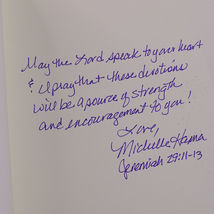 May the Lord speak to your heart
& I pray that these devotions
will be a source of strength
and encouragement to you!
Love,
Michelle Hanna
Jeremiah 29:11-13